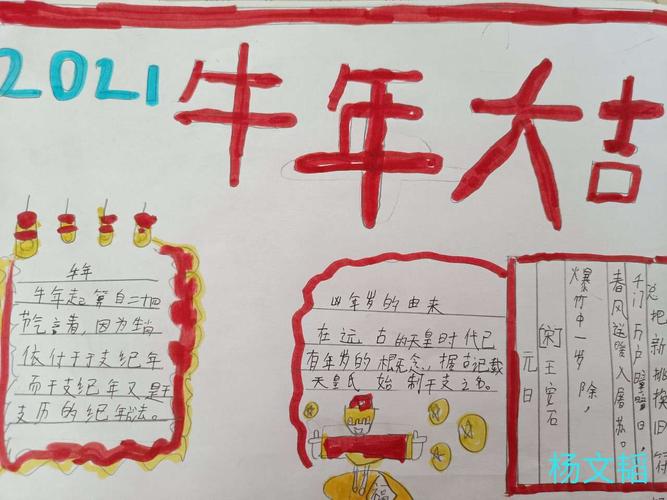 2021 牛年大吉
牛年
牛年起算自二十四
节气立春，因为生肖
依付于干支纪年
而干支纪年又是干
支历的纪年法。
年岁的由来
在远古的天皇时代已
有年岁的概念，据记载
天皇氏始制干支之名。
福
元日
[宋]王安石
爆竹中一岁除，
春风送暖入屠苏。
千门万户曈曈日，
总把新桃换旧符
杨文韬